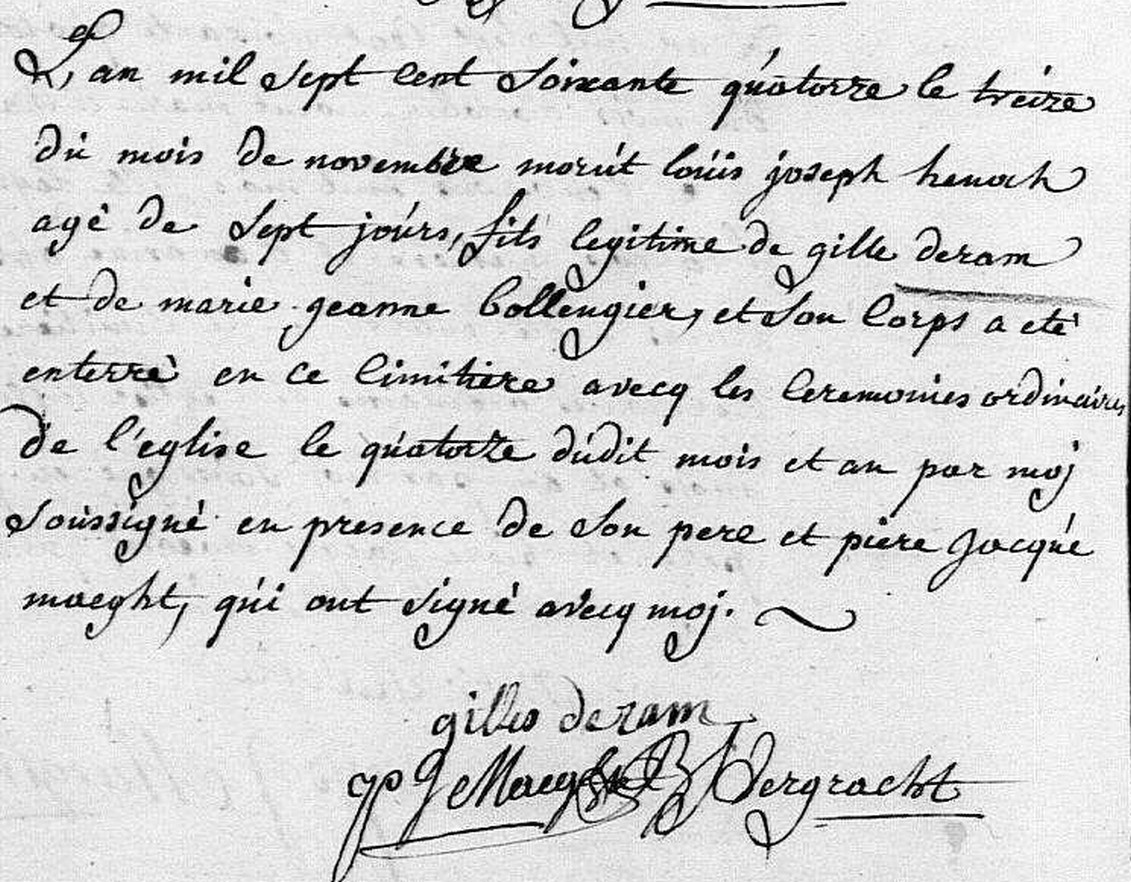 L'an mil sept cent soixante quatorze le treize
du mois de novembre morut louis joseph henoch
agé de sept jours, fils legitime de gille deram
et de marie geanne bollengier, et son corps a eté
enterré en ce cimitiere avecq les ceremonies ordinaires
de l'eglise le quatorze dudit mois et an par moj
soussigné en presence de son pere et piere jacque
maeght, qui ont signé avecq moj.
gilles deram
pJ Maeght Vergracht